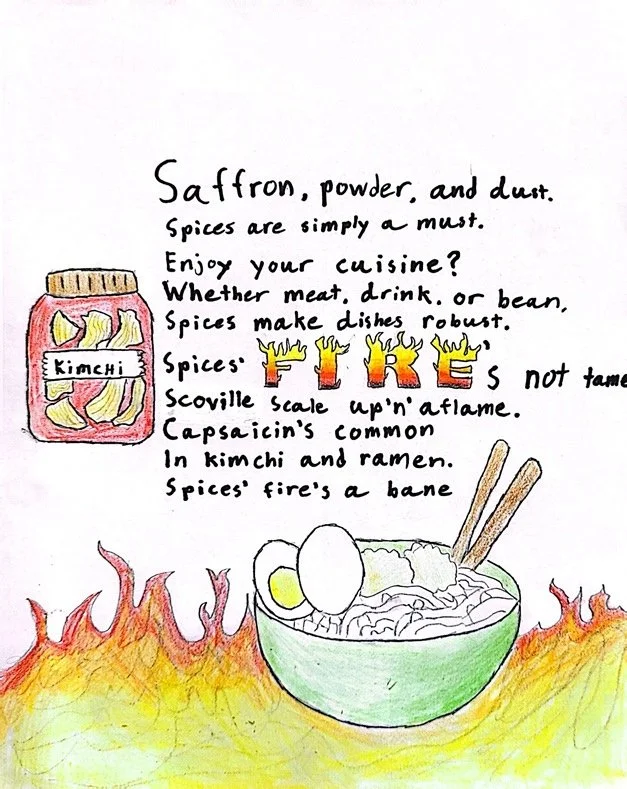 Saffron, powder, and dust.
Spices are simply a must.
Enjoy your cuisine?
Whether meat, drink, or bean,
Spices make dishes robust.
Kimchi
Spices' FIRE's not tame
Scoville scale up'n'aflame.
Capsaicin's common
In kimchi and ramen.
Spices' fire's a bane